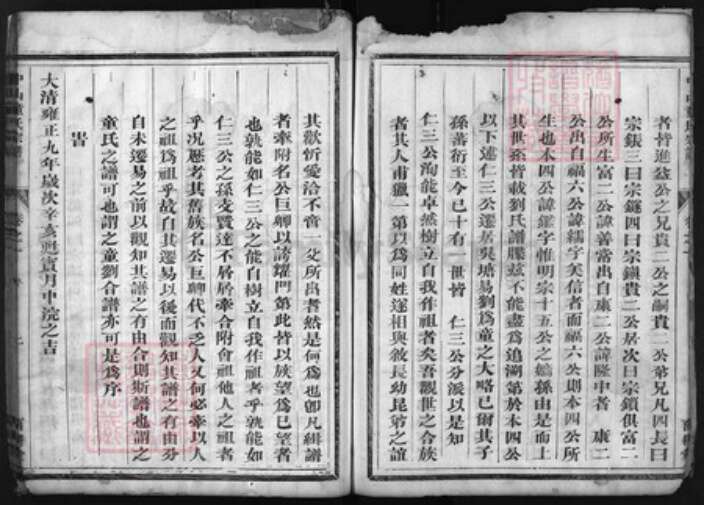 者皆進益公之兄貴二公之嗣貴一公弟兄凡四長曰
宗鋹三曰宗鎚四曰宗鎭貴二公居次曰宗鎖俱富二
公所生富二公諱善當出自康二公諱隆中者康二
公出自福六公諱繻字美信者而福六公則本四公所
生也本四公諱鑑字惟明宗十五公之嫡孫由是而上
其世系皆載劉氏譜牒茲不能盡爲追溯第於本四公
以下述仁三公遷居吳塘易劉爲童之大略已爾其子
孫蕃衍至今已十有一世皆 仁三公分派以是知
仁三公洵能卓然樹立自我作祖者矣吾觀世之合族
者其人甫獵一第以爲同姓遂相與敘長幼昆弟之誼
其歡忻愛洽不啻一父所出者然是何爲也卽凡緝譜
者牽附名公巨卿以誇耀門第此皆以族望爲己望者
也孰能如仁三公之能自樹立自我作祖者乎孰能如
仁三公之孫支賢達不屑屑牽合附會祖他人之祖者
乎况應者其舊族名公巨卿代不乏人又何必牽以人
之祖爲祖乎故自其遷易以後而觀知其譜之有由分
自未遷易之前以觀知其譜之有由合則斯譜也謂之
童氏之譜可也謂之童劉合譜亦可是爲序
旹
大清雍正九年歲次辛亥蕤賓月中浣之吉